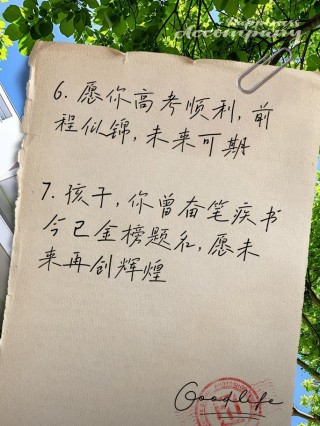 happiness
accompany
6. 愿你高考顺利, 前
程似锦, 未来可期
7. 孩子, 你曾奋笔疾书
今已金榜题名, 愿未
来再创辉煌
Goodlife